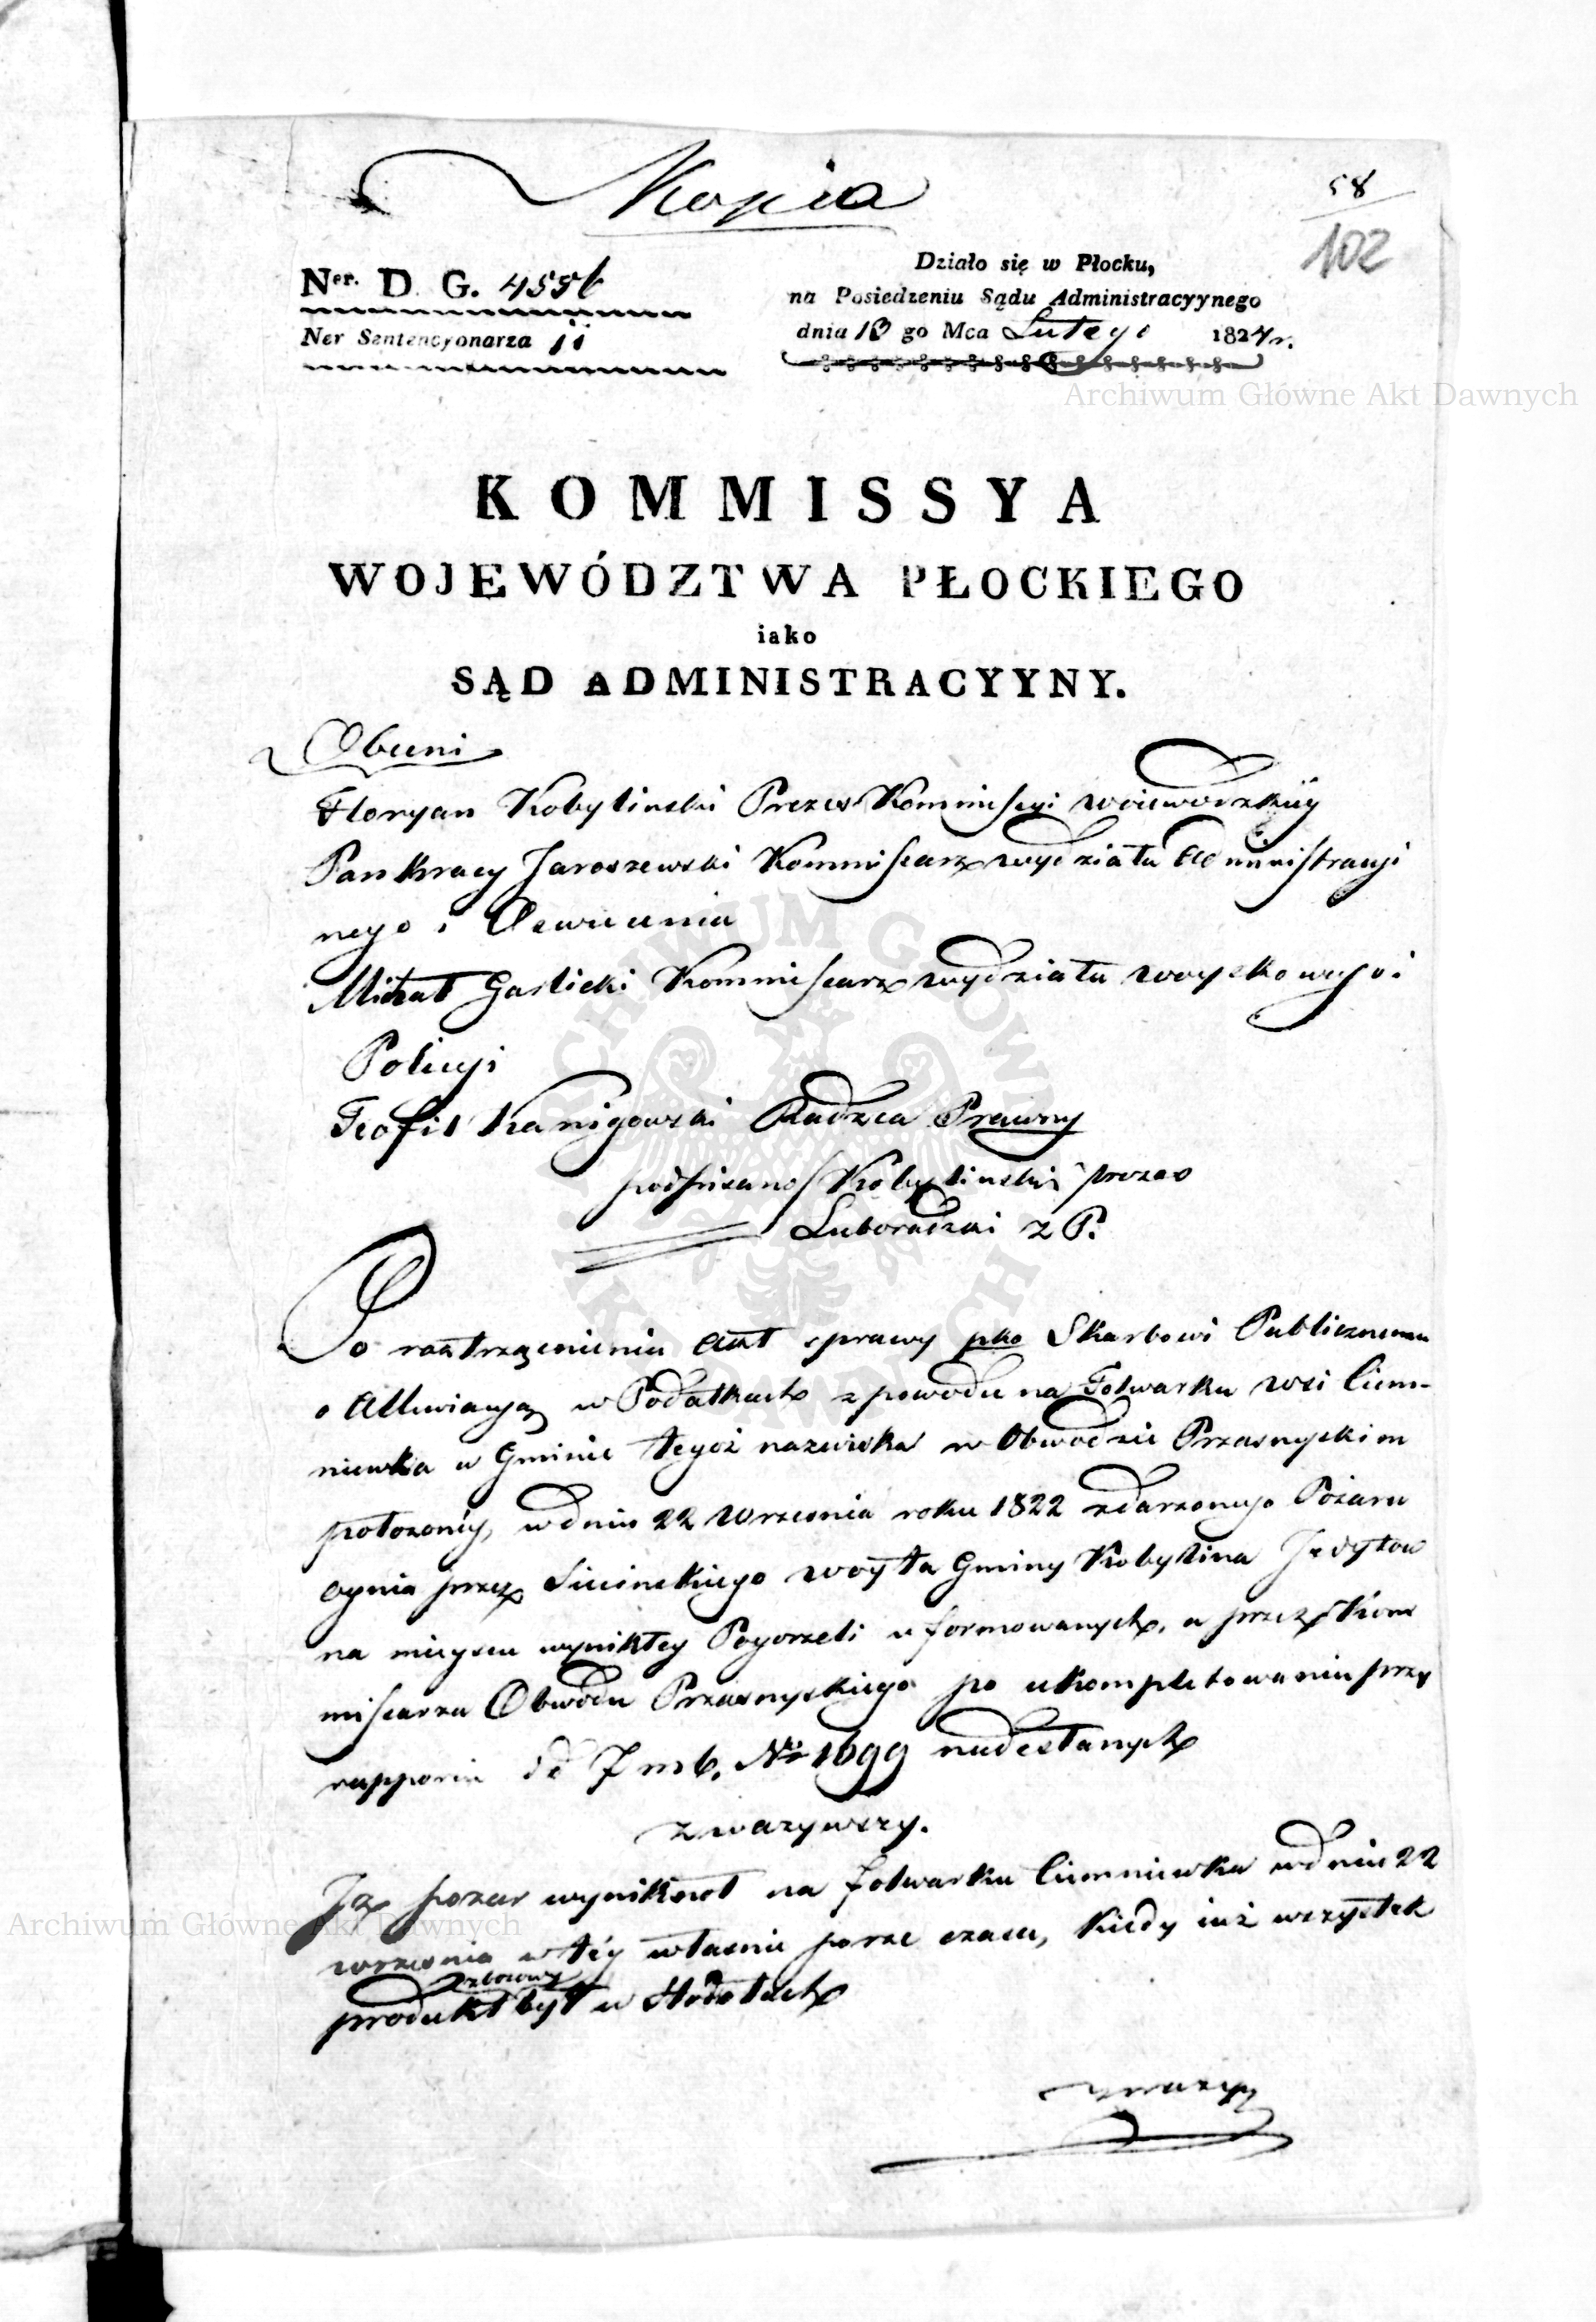 Kopia
58
102
Ner. D. G. 4556
Ner Sentencyonarza 11
Działo się w Płocku,
na Posiedzeniu Sądu Administracyynego
dnia 13 go Mca Lutego 1824 r.
Archiwum Główne Akt Dawnych
KOMMISSYA
WOJEWÓDZTWA PŁOCKIEGO
iako
SĄD ADMINISTRACYYNY.
Obecni
Floryan Kobylinski Prezes Kommissyi woiewodzkiey
Pankracy Jaroszewski Kommissarz wydziału Administracyi
nego i Oswiecenia
Michał Garlicki Kommissarz wydziału woyskowego i
Policyi
Teofil Kanigowski Radzca Prawny
podpisano Kobylinski prezes
Luboradzki z P.
Po roztrząsnieniu Akt sprawy pko Skarbowi Publicznemu
o Allewiacyą w Podatkach z powodu na Folwarku wsi Ciem-
niewka w Gminie tegoż nazwiska w Obwodzie Przasnyskim
położoney, w dniu 22 Wrzesnia roku 1822 zdarzonego Pożaru
ognia przez Siecinskiego woyta Gminy Kobylina
na mieyscu wynikłey Pogorzeli uformowanych, a przez Kom
missarza Obwodu Przasnyskiego po ukompletowaniu przy
rapporcie de 7 mb. No 1699 nadesłanych
zwazywszy.
Iż pozar wyniknoł na folwarku Ciemniewku w dniu 22
wrzesnia w téy własnie porze czasu, kiedy iuż wszystek
zbozowy
produkt był w Stodołach
Archiwum Główne Akt Dawnych
zwazyw